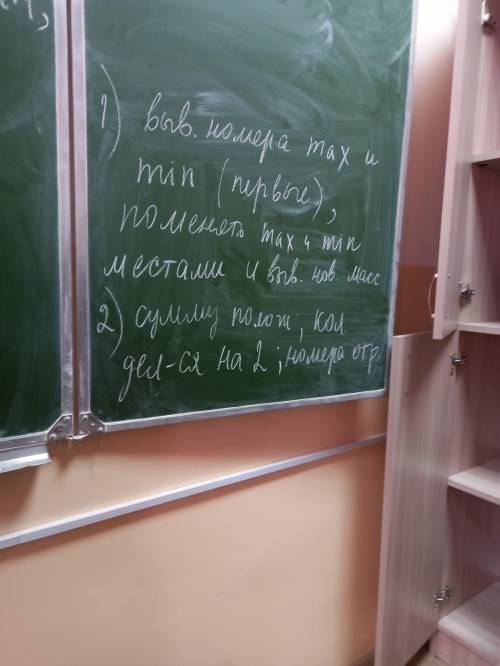 1) выв. номера max и
min (первые),
поменять max и min
местами и выв. нов. масс
2) сумму полож; кол.
дел-ся на 2; номера отр.